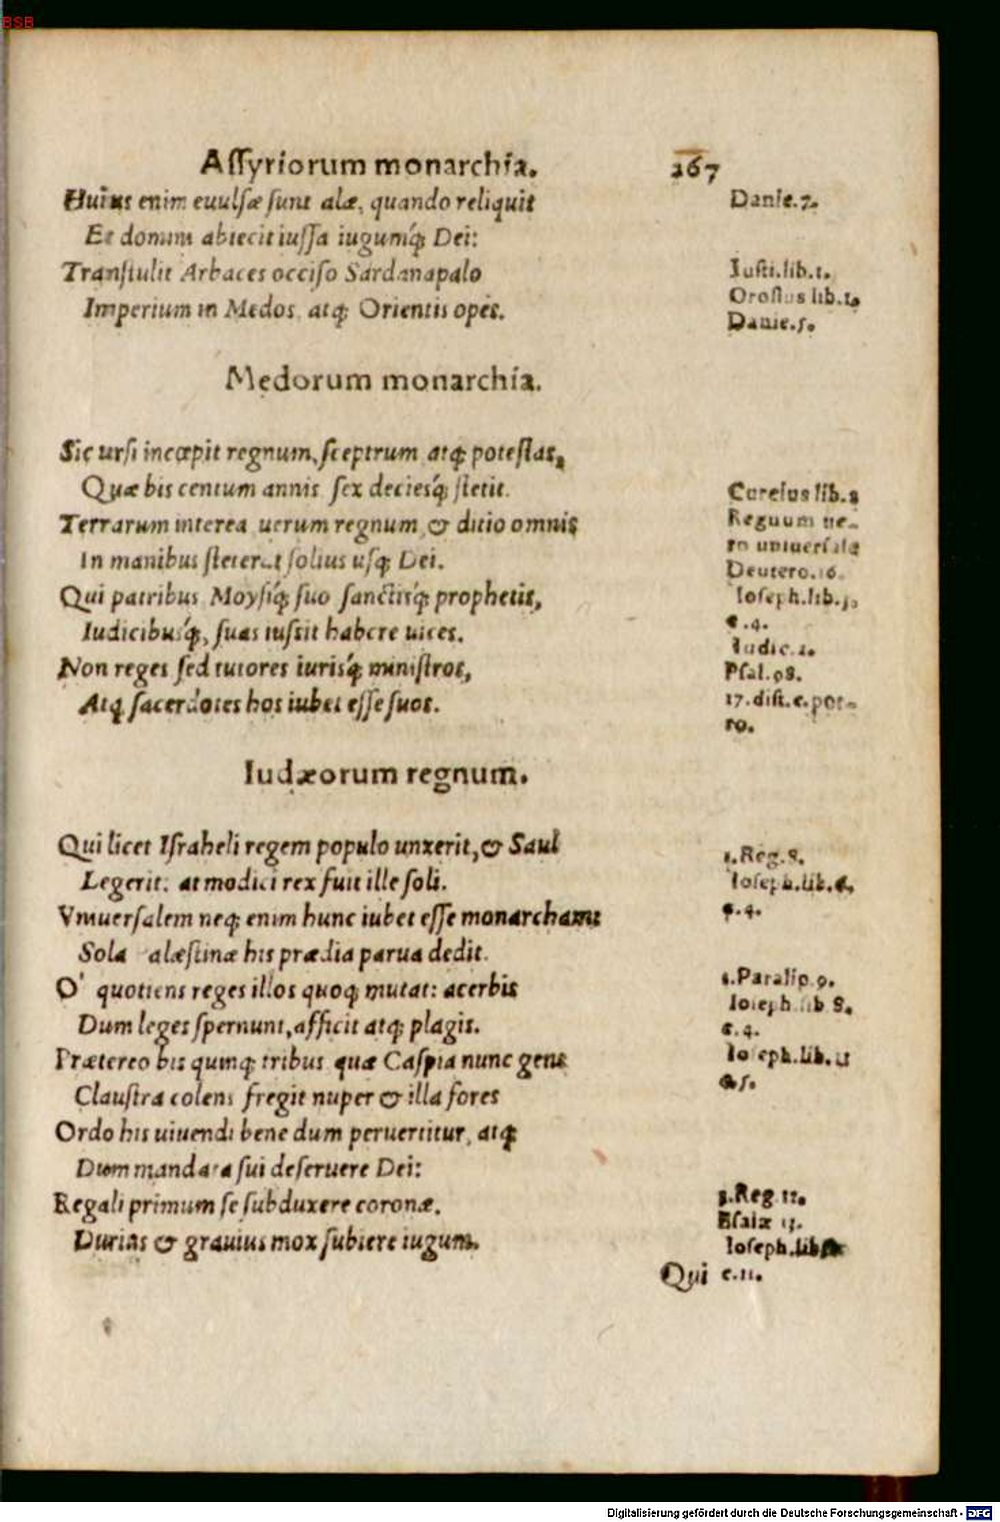 BSB
Aſſyriorum monarchia. 267
Huius enim euulſæ ſunt alæ, quando reliquit
Et domum abiecit iuſſa iugumq́; Dei:
Tranſtulit Arbaces occiſo Sardanapalo
Imperium in Medos, atq; Orientis opes.
Danie.7.
Iuſti.lib.1.
Oroſius lib.1.
Danie.5.
Medorum monarchia.
Sic urſi incœpit regnum, ſceptrum atq; poteſtas,
Quæ bis centum annis ſex deciesq́; ſtetit.
Terrarum interea uerum regnum & ditio omnis
In manibus ſteterat ſolius uſq; Dei.
Qui patribus Moyſiq́; ſuo ſanctisq́; prophetis,
Iudicibusq́;, ſuas iuſsit habere uices.
Non reges ſed tutores iurisq́; miniſtros,
Atq; ſacerdotes hos iubet eſſe ſuos.
lib.
Regnum ue-
ro uniuerſale
Deutero.16.
Ioſeph.lib.
c.4.
Iudic.1.
Pſal.98.
17.diſt.c.por-
ro.
Iudæorum regnum.
Qui licet Iſraheli regem populo unxerit, & Saul
Legerit: at modici rex fuit ille ſoli.
Vniuerſalem neq; enim hunc iubet eſſe monarcham
Sola alæſtinæ his prædia parua dedit.
O' quotiens reges illos quoq; mutat: acerbis
Dum leges ſpernunt, afficit atq; plagis.
Prætereo bis quinq; tribus quæ Caſpia nunc gens
Clauſtra colens fregit nuper & illa fores
Ordo his uiuendi bene dum peruertitur, atq;
Dum mandata ſui deſeruere Dei:
Regali primum ſe ſubduxere coronæ.
Durius & grauius mox ſubiere iugum.
1.Reg.8.
Ioſeph.lib.6.
c.4.
1.Paralip.9.
Ioſeph.lib.8.
c.4.
Ioſeph.lib.11
c.5.
3.Reg.12.
Eſaiæ
Ioſeph.lib
c.11.
Qui
Digitalisierung gefördert durch die Deutsche Forschungsgemeinschaft - DFG